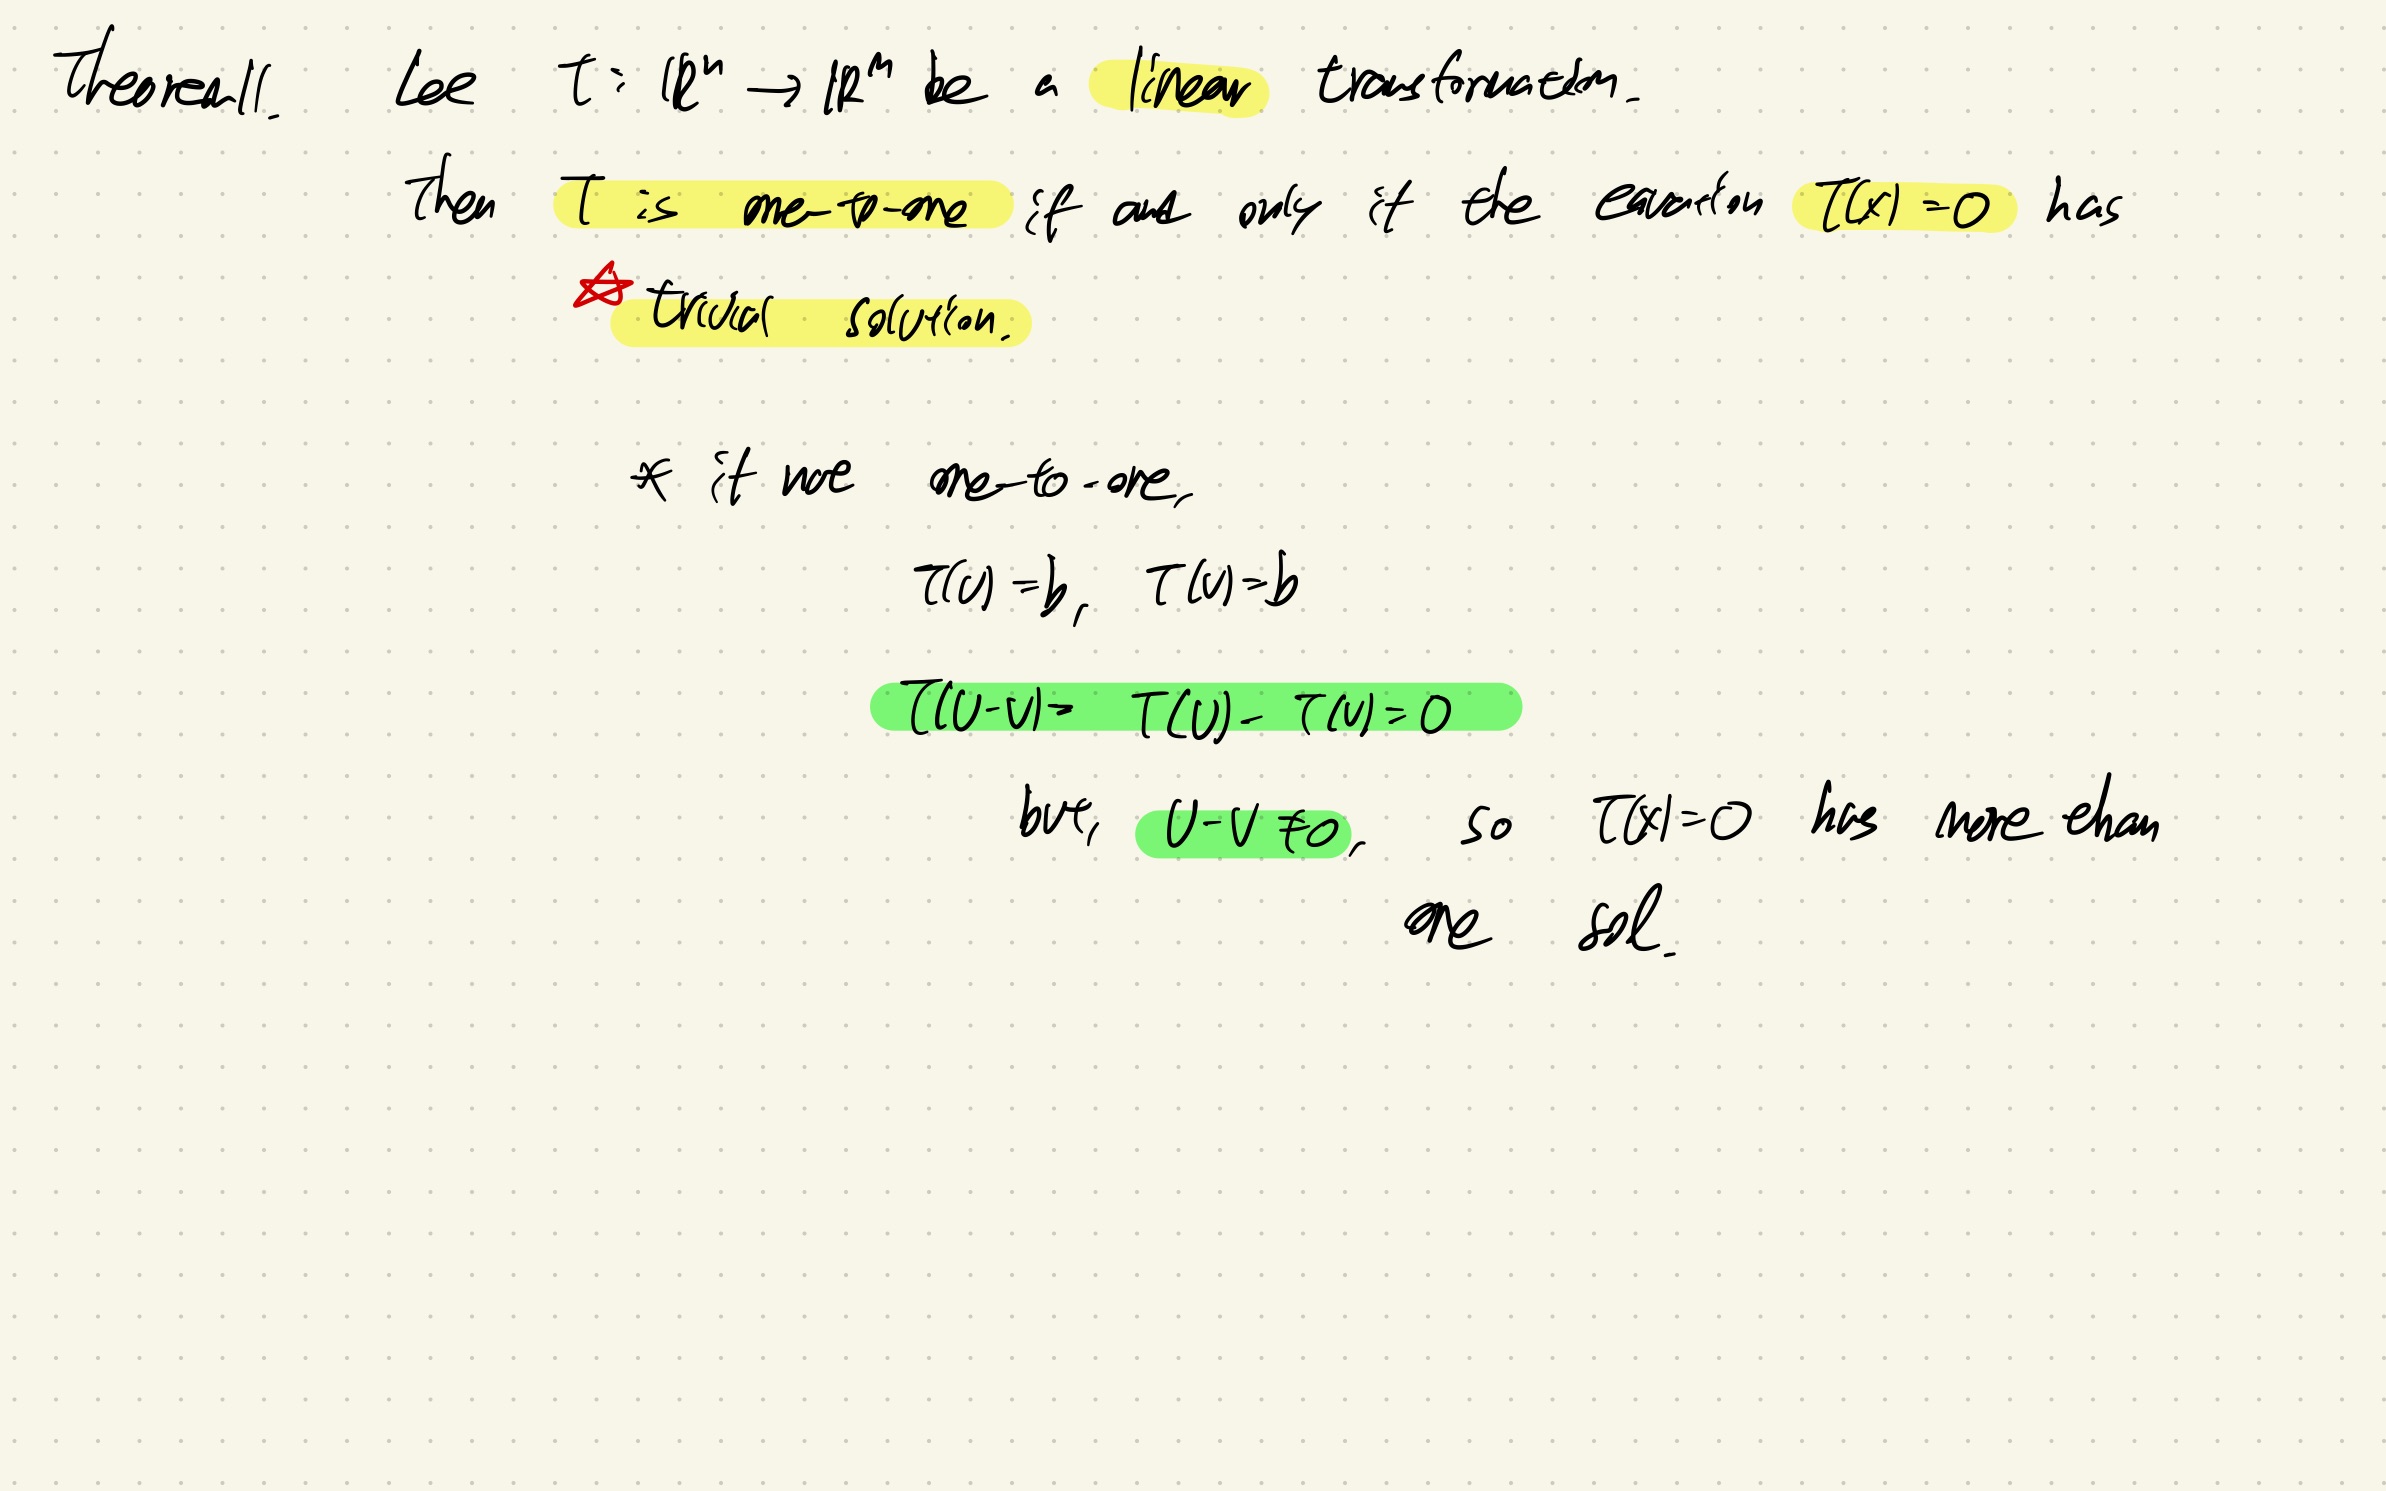 Theorem 11. Let T: ℝⁿ → ℝᵐ be a linear transformation.
Then T is one-to-one if and only if the equation T(x) = 0 has
☆ trivial solution.
* if not one-to-one,
T(u) = b, T(v) = b
T(u-v) = T(u) - T(v) = 0
but, u-v ≠ 0, so T(x) = 0 has more than
one sol.